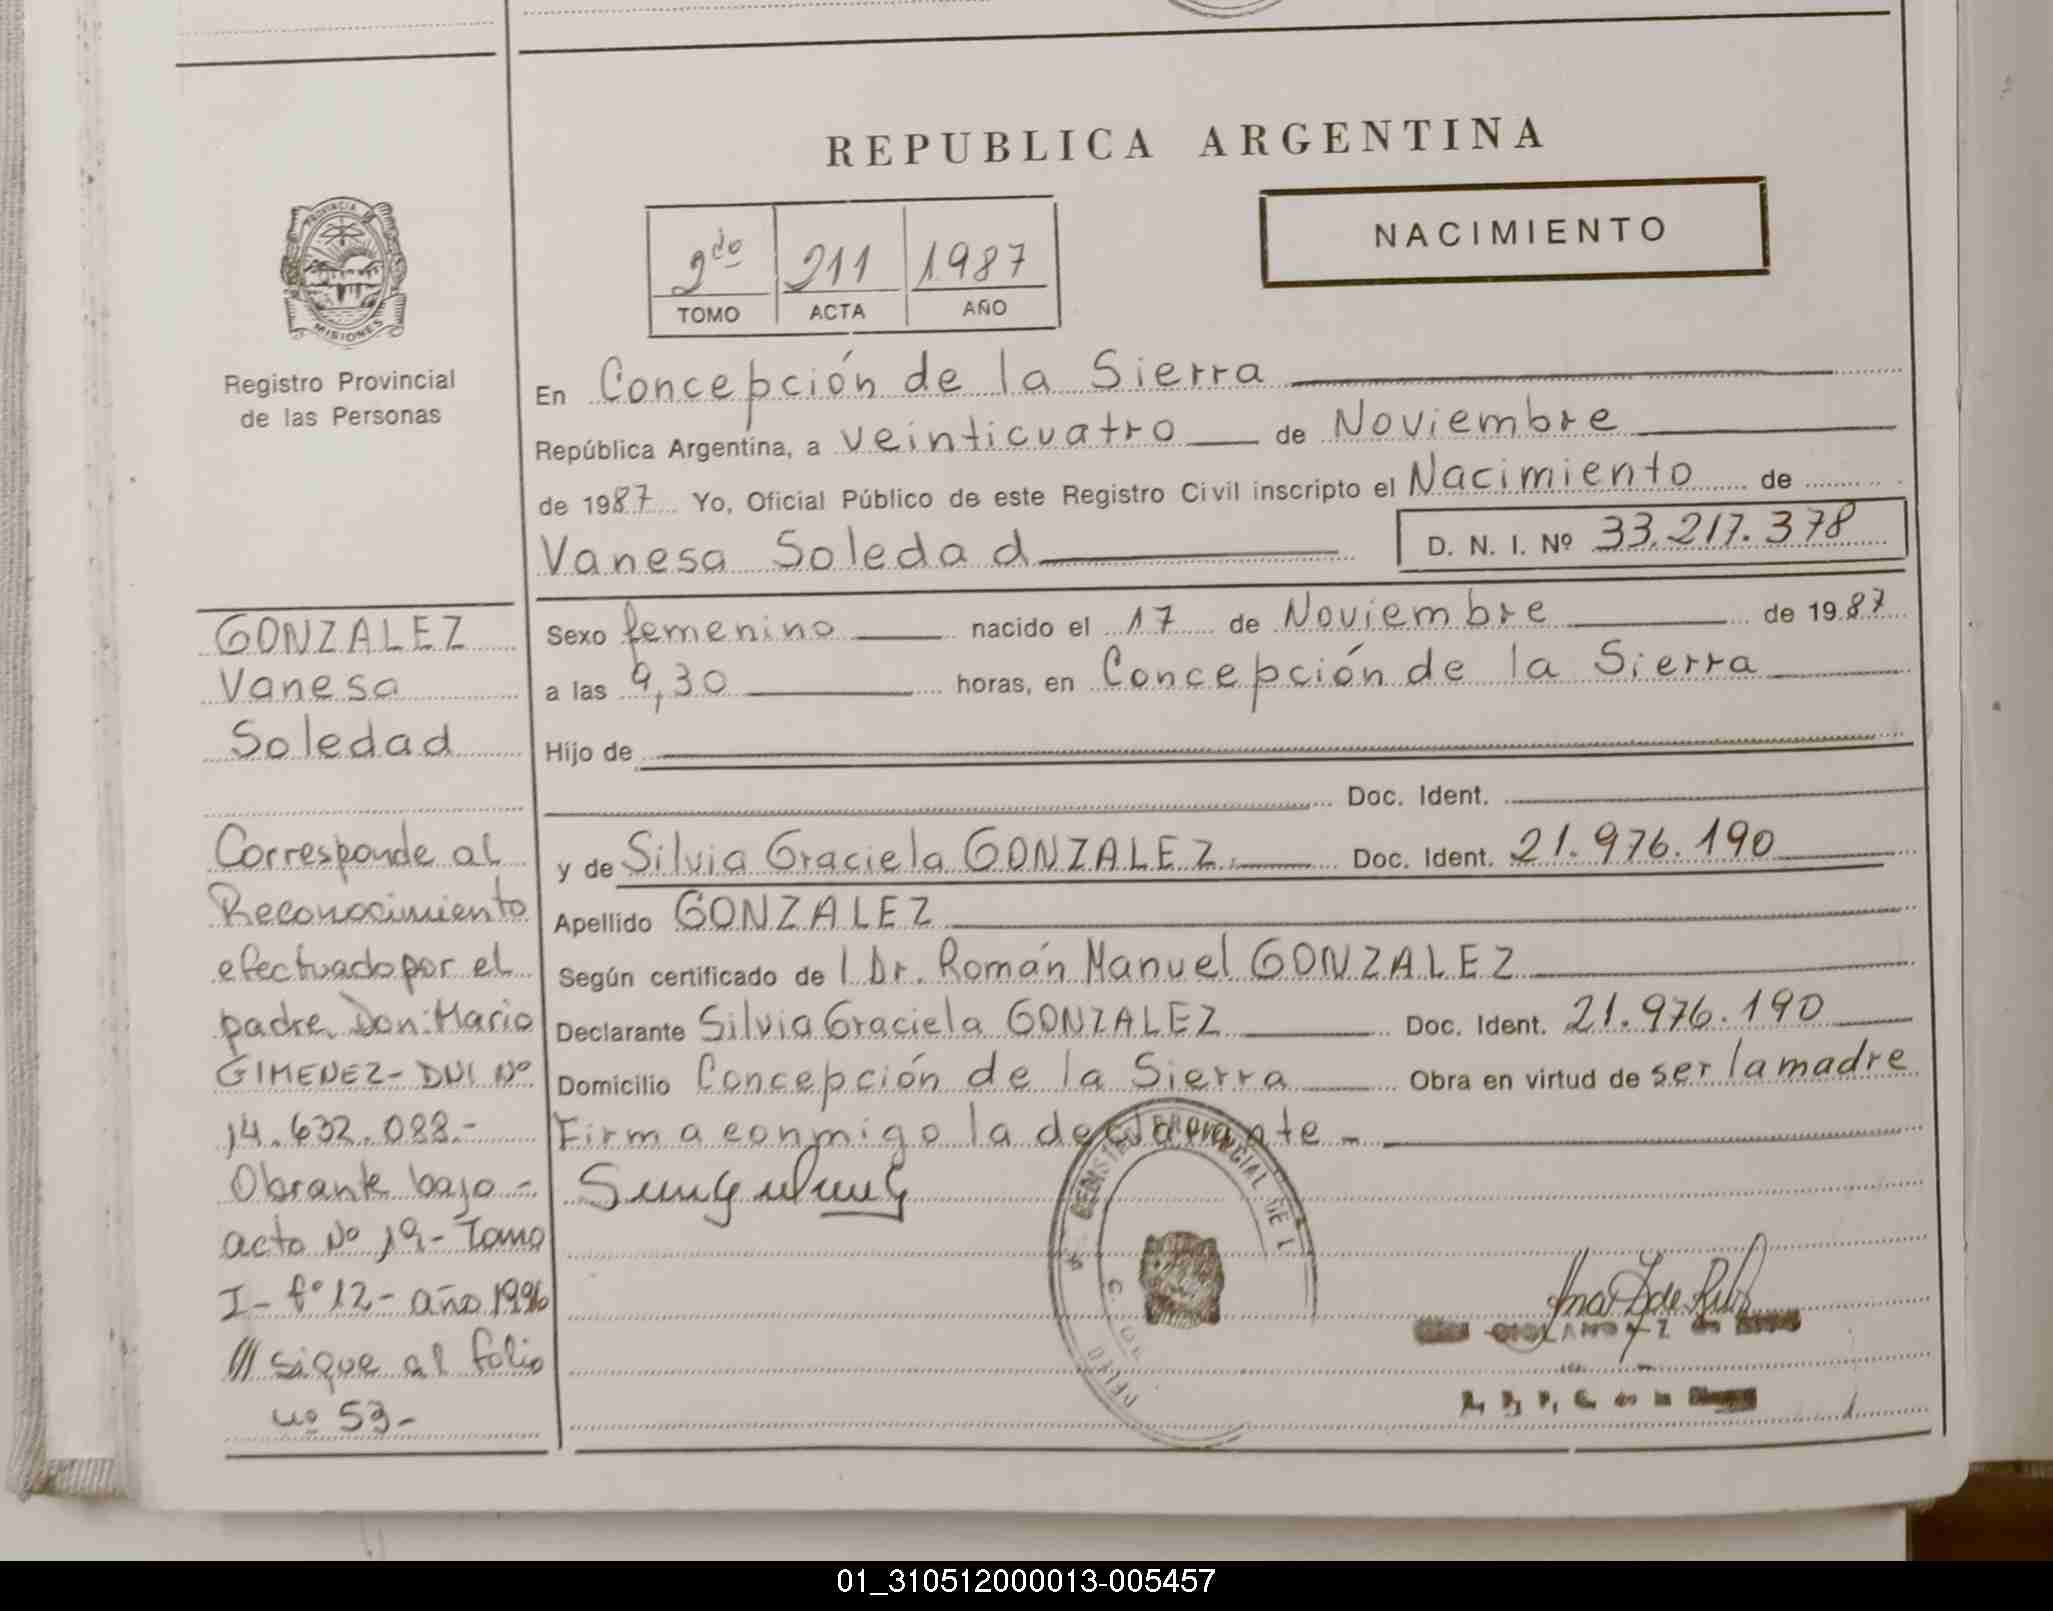 REPUBLICA ARGENTINA
NACIMIENTO
2do 211 1987
TOMO ACTA AÑO
PROVINCIA
MISIONES
Registro Provincial
de las Personas
En Concepción de la Sierra
República Argentina, a veinticuatro de Noviembre
de 1987 Yo, Oficial Público de este Registro Civil inscripto el Nacimiento de
Vanesa Soledad D. N. I. Nº 33.217.378
Sexo femenino nacido el 17 de Noviembre de 1987
a las 9,30 horas, en Concepción de la Sierra
Hijo de
Doc. Ident.
y de Silvia Graciela GONZALEZ Doc. Ident. 21.976.190
Apellido GONZALEZ
Según certificado de l Dr. Román Manuel GONZALEZ
Declarante Silvia Graciela GONZALEZ Doc. Ident. 21.976.190
Domicilio Concepción de la Sierra Obra en virtud de ser la madre
Firma conmigo la declarante -
GONZALEZ
Vanesa
Soledad
Corresponde al
Reconocimiento
efectuado por el
padre Don: Mario
GIMENEZ- DNI Nº
14.632.088.-
Obrante bajo -
acta Nº 19- Tomo
I- fº 12- año 1996
/// sigue al folio
nº 53-
REGISTRO PROVINCIAL DE L
01_310512000013-005457